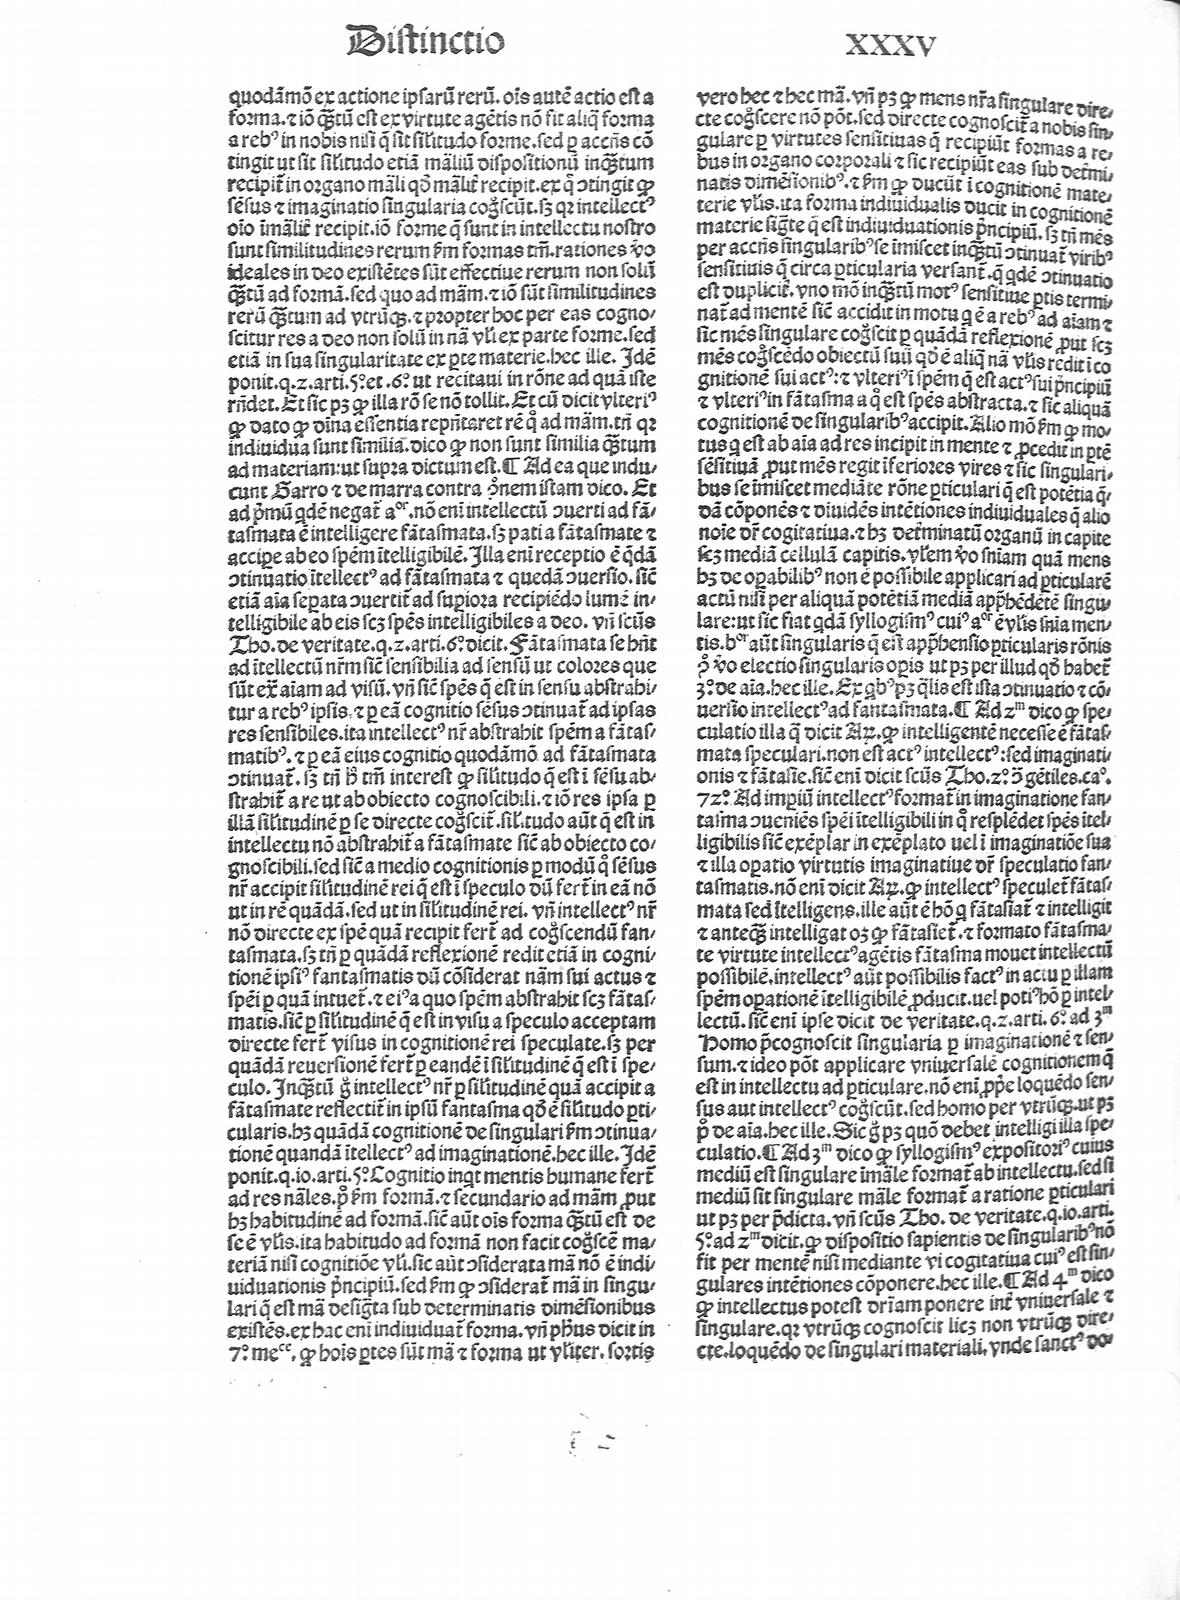 Distinctio XXXV
quodāmō ex actione ipsarū rerū. oīs autē actio est a
forma. ⁊ iō qȝtū est ex virtute agētis nō fit aliq̄ forma
a rebꝰ in nobis nisi q̄ sit sil'itudo forme. sed ꝑ accn̄s cō
tingit ut sit sil'itudo etiā mālíū dispositionū inqȝtum
recipit̄ in organo māli qd̄ mālit̄ recipit. ex q̊ ↄtingit ꝙ
sēsus ⁊ imaginatio singularia cog̊scūt. sȝ qꝛ intellectꝰ
oīo īmālit̄ recipit. iō forme q̄ sunt in intellectu nostro
sunt similitudines rerum ẜm formas tm̄. rationes v̊o
ideales in deo existētes sūt effectiue rerum non solū
qȝtū ad formā. sed quo ad mām. ⁊ iō sūt similitudines
rerū qȝtum ad vtrūqȝ. ⁊ propter hoc per eas cogno⸗
scitur res a deo non solū in nā vl'i ex parte forme. sed
etiā in sua singularitate ex ꝑte materie. hec ille. Idē
ponit. q. 2. arti. 5º. et .6º. ut recitaui in rōne ad quā iste
rn̄det. Et sic pȝ ꝙ illa rō se nō tollit. Et cū dicit vlteriꝰ
ꝙ dato ꝙ diīna essentia repn̄taret re q̊ ad mām. tn̄ qꝛ
indiuidua sunt similia. dico ꝙ non sunt similia qȝtum
ad materiam: ut supra dictum est. ¶ Ad ea que indu⸗
cunt Garro ⁊ de marra contra ꝯnem istam dico. Et
ad p̄mū qdē negat̄ aᵒʳ. nō enī intellectū ↄuerti ad fā⸗
tasmata ē intelligere fātasmata. sȝ pati a fātasmate ⁊
accipe ab eo spēm ītelligibilē. Illa enī receptio ē q̄dā
ↄtinuatio ītellectꝰ ad fātasmata ⁊ quedā ↄuersio. sic̄
etiā aīa seꝑata ↄuertit̄ ad suꝑiora recipiēdo lumē in⸗
telligibile ab eis scȝ spēs intelligibiles a deo. vn̄ scūs
Tho. de veritate. q. 2. arti. 6º. dicit. Fātasmata se hn̄t
ad ītellectū nr̄m sic̄ sensibilia ad sensū ut colores que
sūt ex̄ aīam ad visū. vn̄ sic̄ spēs q̄ est in sensu abstrahi⸗
tur a rebꝰ ipsis. ⁊ ꝑ eā cognitio sēsus ↄtinuat̄ ad ipsas
res sensibiles. ita intellectꝰ nr̄ abstrahit spēm a fātas⸗
matibꝰ. ⁊ ꝑ eā eius cognitio quodāmō ad fātasmata
ↄtinuat̄. sȝ tn̄ h̄ tm̄ interest ꝙ sil'itudo q̄ est ī sēsu ab⸗
strahit̄ a re ut ab obiecto cognoscibili. ⁊ iō res ipsa ꝑ
illā sil'itudinē ꝑ se directe cog̊scit̄. sil'itudo aūt q̄ est in
intellectu nō abstrahit̄ a fātasmate sic̄ ab obiecto co⸗
gnoscibili. sed sic̄ a medio cognitionis ꝑ modū q̊ sēsus
nr̄ accipit sil'itudinē rei q̄ est ī speculo dū fert̄ in eā nō
ut in rē quādā. sed ut in sil'itudinē rei. vn̄ intellectꝰ nr̄
nō directe ex spē quā recipit fert̄ ad cog̊scendū fan⸗
tasmata. sȝ tn̄ ꝑ quādā reflexionē redit etiā in cogni⸗
tionē ipsiꝰ fantasmatis dū cōsiderat nām sui actus ⁊
spēi ꝑ quā intuet̄. ⁊ eiꝰ a quo spēm abstrahit scȝ fātas⸗
matis. sic̄ ꝑ sil'itudinē q̄ est in visu a speculo acceptam
directe fert̄ visus in cognitionē rei speculate. sȝ per
quādā reuersionē fert̄ ꝑ eandē ī sil'itudinē q̄ est ī spe⸗
culo. Inqȝtū g̊ intellectꝰ nr̄ ꝑ sil'itudinē quā accipit a
fātasmate reflectit̄ in ipsū fantasma qd̄ ē sil'itudo ꝑti⸗
cularis. hȝ quādā cognitionē de singulari ẜm ↄtinua⸗
tionē quandā ītellectꝰ ad imaginationē. hec ille. Idē
ponit. q. io. arti. 5º. Cognitio inqt mentis humane fert̄
ad res nāles. p̊ ẜm formā. ⁊ secundario ad mām ꝓut
hȝ habitudinē ad formā. sic̄ aūt oīs forma qȝtū est de
se ē vl'is. ita habitudo ad formā non facit cog̊scē ma⸗
teriā nisi cognitiōe vl'i. sic aūt ↄsiderata mā nō ē indi⸗
uiduationis p̄ncipiū. sed ẜm ꝙ ↄsiderat̄ mā in singu⸗
lari q̄ est mā desig̊ta sub determinatis dimēsionibus
existēs. ex hac enī indiuiduat̄ forma. vn̄ ph̄us dicit in
7º. meᶜᵉ. ꝙ hoīs ꝑtes sūt mā ⁊ forma ut vl'iter. sortis
vero hec ⁊ hec mā. vn̄ pȝ ꝙ mens nr̄a singulare dire⸗
cte cog̊scere nō pōt. sed directe cognoscit̄ a nobis sin⸗
gulare ꝑ virtutes sensitiuas q̄ recipiūt formas a re⸗
bus in organo corporali ⁊ sic recipiūt eas sub det̄mi⸗
natis dimēsionibꝰ. ⁊ ẜm ꝙ ducūt ī cognitionē mate⸗
terie vl'is. ita forma indiuidualis ducit in cognitionē
materie sig̊te q̄ est indiuiduationis p̄ncipiū. sȝ tn̄ mēs
per accn̄s singularibꝰ se īmiscet inqȝtū ↄtinuat̄ viribꝰ
sensitiuis q̄ circa ꝑticularia versant̄. q̄ qdē ↄtinuatio
est duplicit̄. vno mō inqȝtū motꝰ sensitiue ꝑtis termi⸗
nat̄ ad mentē sic̄ accidit in motu q ē a rebꝰ ad aīam ⁊
sic mēs singulare cog̊scit ꝑ quādā reflexionē ꝓut scȝ
mēs cog̊scēdo obiectū suū qd̄ ē aliq̄ nā vl'is redit ī co
gnitionē sui actꝰ: ⁊ vlteriꝰ ī spēm q̄ est actꝰ sui p̄ncipiū
⁊ vlteriꝰ in fātasma a q̊ est spēs abstracta. ⁊ sic aliquā
cognitionē de singularibꝰ accipit. Alio mō ẜm ꝙ mo⸗
tus q est ab aīa ad res incipit in mente ⁊ ꝓcedit in ꝑtē
sēsitiuā ꝓut mēs regit īferiores vires ⁊ sic singulari⸗
bus se īmiscet mediāte rōne ꝑticulari q̄ est potētia q̄⸗
dā cōponēs ⁊ diuidēs intētiones indiuiduales q̄ alio
noīe dr̄ cogitatiua. ⁊ hȝ det̄minatū organū in capite
scȝ mediā cellulā capitis. vl'em v̊o sn̄iam quā mens
hȝ de oꝑabilibꝰ non ē possibile applicari ad ꝑticularē
actū nisi per aliquā potētiā mediā appͬhēdētē singu⸗
lare: ut sic fiat qdā syllogismꝰ cuiꝰ aᵒʳ ē vl'is sn̄ia men⸗
tis. bᵒʳ aūt singularis q̄ est appͬhensio ꝑticularis rōnis
ꝯ v̊o electio singularis oꝑis ut pȝ per illud qd̄ habet̄
3º. de aīa. hec ille. Ex qbꝰ pȝ q̄lis est ista ↄtinuatio ⁊ cō⸗
uersio intellectꝰ ad fantasmata. ¶ Ad 2ᵐ dico ꝙ spe⸗
culatio illa q̄ dicit Aꝝ. ꝙ intelligentē necesse ē fātas⸗
mata speculari. non est actꝰ intellectꝰ: sed imaginati⸗
onis ⁊ fātasie. sic̄ enī dicit scūs Tho. 2º. ↄ̄ gētiles. caº.
72º. Ad impiū intellectꝰ format̄ in imaginatione fan⸗
tasma ↄueniēs spēi ītelligibili in q̊ resplēdet spēs ītel⸗
ligibilis sic̄ exēplar in exēplato uel ī imaginatiōe sua
⁊ illa oꝑatio virtutis imaginatiue dr̄ speculatio fan⸗
tasmatis. nō enī dicit Aꝝ. ꝙ intellectꝰ speculet̄ fātas⸗
mata sed ītelligens. ille aūt ē hō q fātasiat̄ ⁊ intelligit
⁊ anteqȝ intelligat oȝ ꝙ fātasiet̄. ⁊ formato fātasma⸗
te virtute intellectꝰ agētis fātasma mouet intellectū
possibilē. intellectꝰ aūt possibilis factꝰ in actu ꝑ illam
spēm oꝑationē ītelligibilē ꝓducit. uel potiꝰ hō ꝑ intel⸗
lectū. sic̄ enī ipse dicit de veritate. q. 2. arti. 6º. ad 3ᵐ
Homo p̄cognoscit singularia ꝑ imaginationē ⁊ sen⸗
sum. ⁊ ideo pōt applicare vniuersalē cognitionem q̄
est in intellectu ad ꝑticulare. nō enī ꝓpͬe loquēdo sen⸗
sus aut intellectꝰ cog̊scūt. sed homo per vtrūqȝ. ut pȝ
p̊ de aīa. hec ille. Sic g̊ pȝ quō debet intelligi illa spe⸗
culatio. ¶ Ad 3ᵐ dico ꝙ syllogismꝰ expositoriꝰ cuius
mediū est singulare īmāle format̄ ab intellectu. sed si
mediū sit singulare māle format̄ a ratione ꝑticulari
ut pȝ per p̄dicta. vn̄ scūs Tho. de veritate. q. io. arti.
5º. ad 2ᵐ dicit. ꝙ dispositio sapientis de singularibꝰ nō
fit per mentē nisi mediante vi cogitatiua cuiꝰ est sin⸗
gulares intētiones cōponere. hec ille. ¶ Ad 4ᵐ dico
ꝙ intellectus potest dr̄iam ponere int̄ vniuersale ⁊
singulare. qꝛ vtrūqȝ cognoscit licȝ non vtrūqȝ dire⸗
cte. loquēdo de singulari materiali. vnde sanctꝰ do⸗